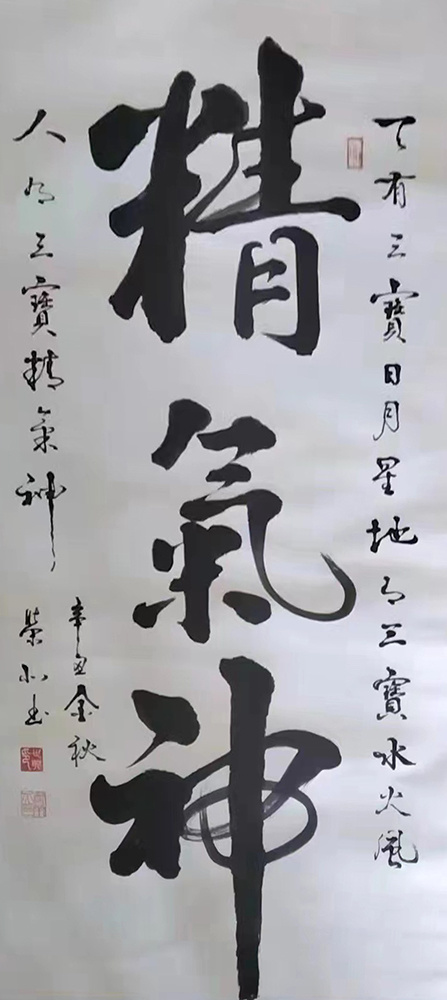 精氣神
天有三寶日月星地有三寶水火風
人有三寶精氣神
辛丑金秋